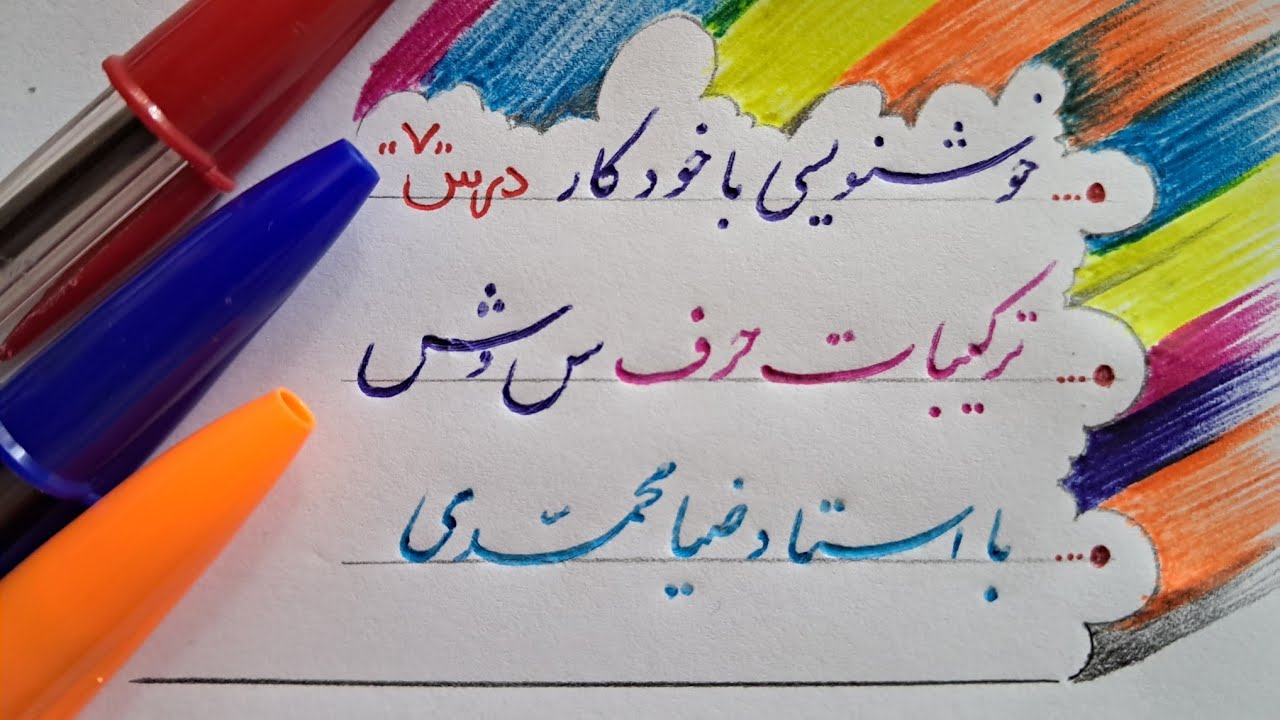 خوشنویسی با خودکار درس "۷"
ترکیبات حرف س و ش
با استاد ضیا محمّدی